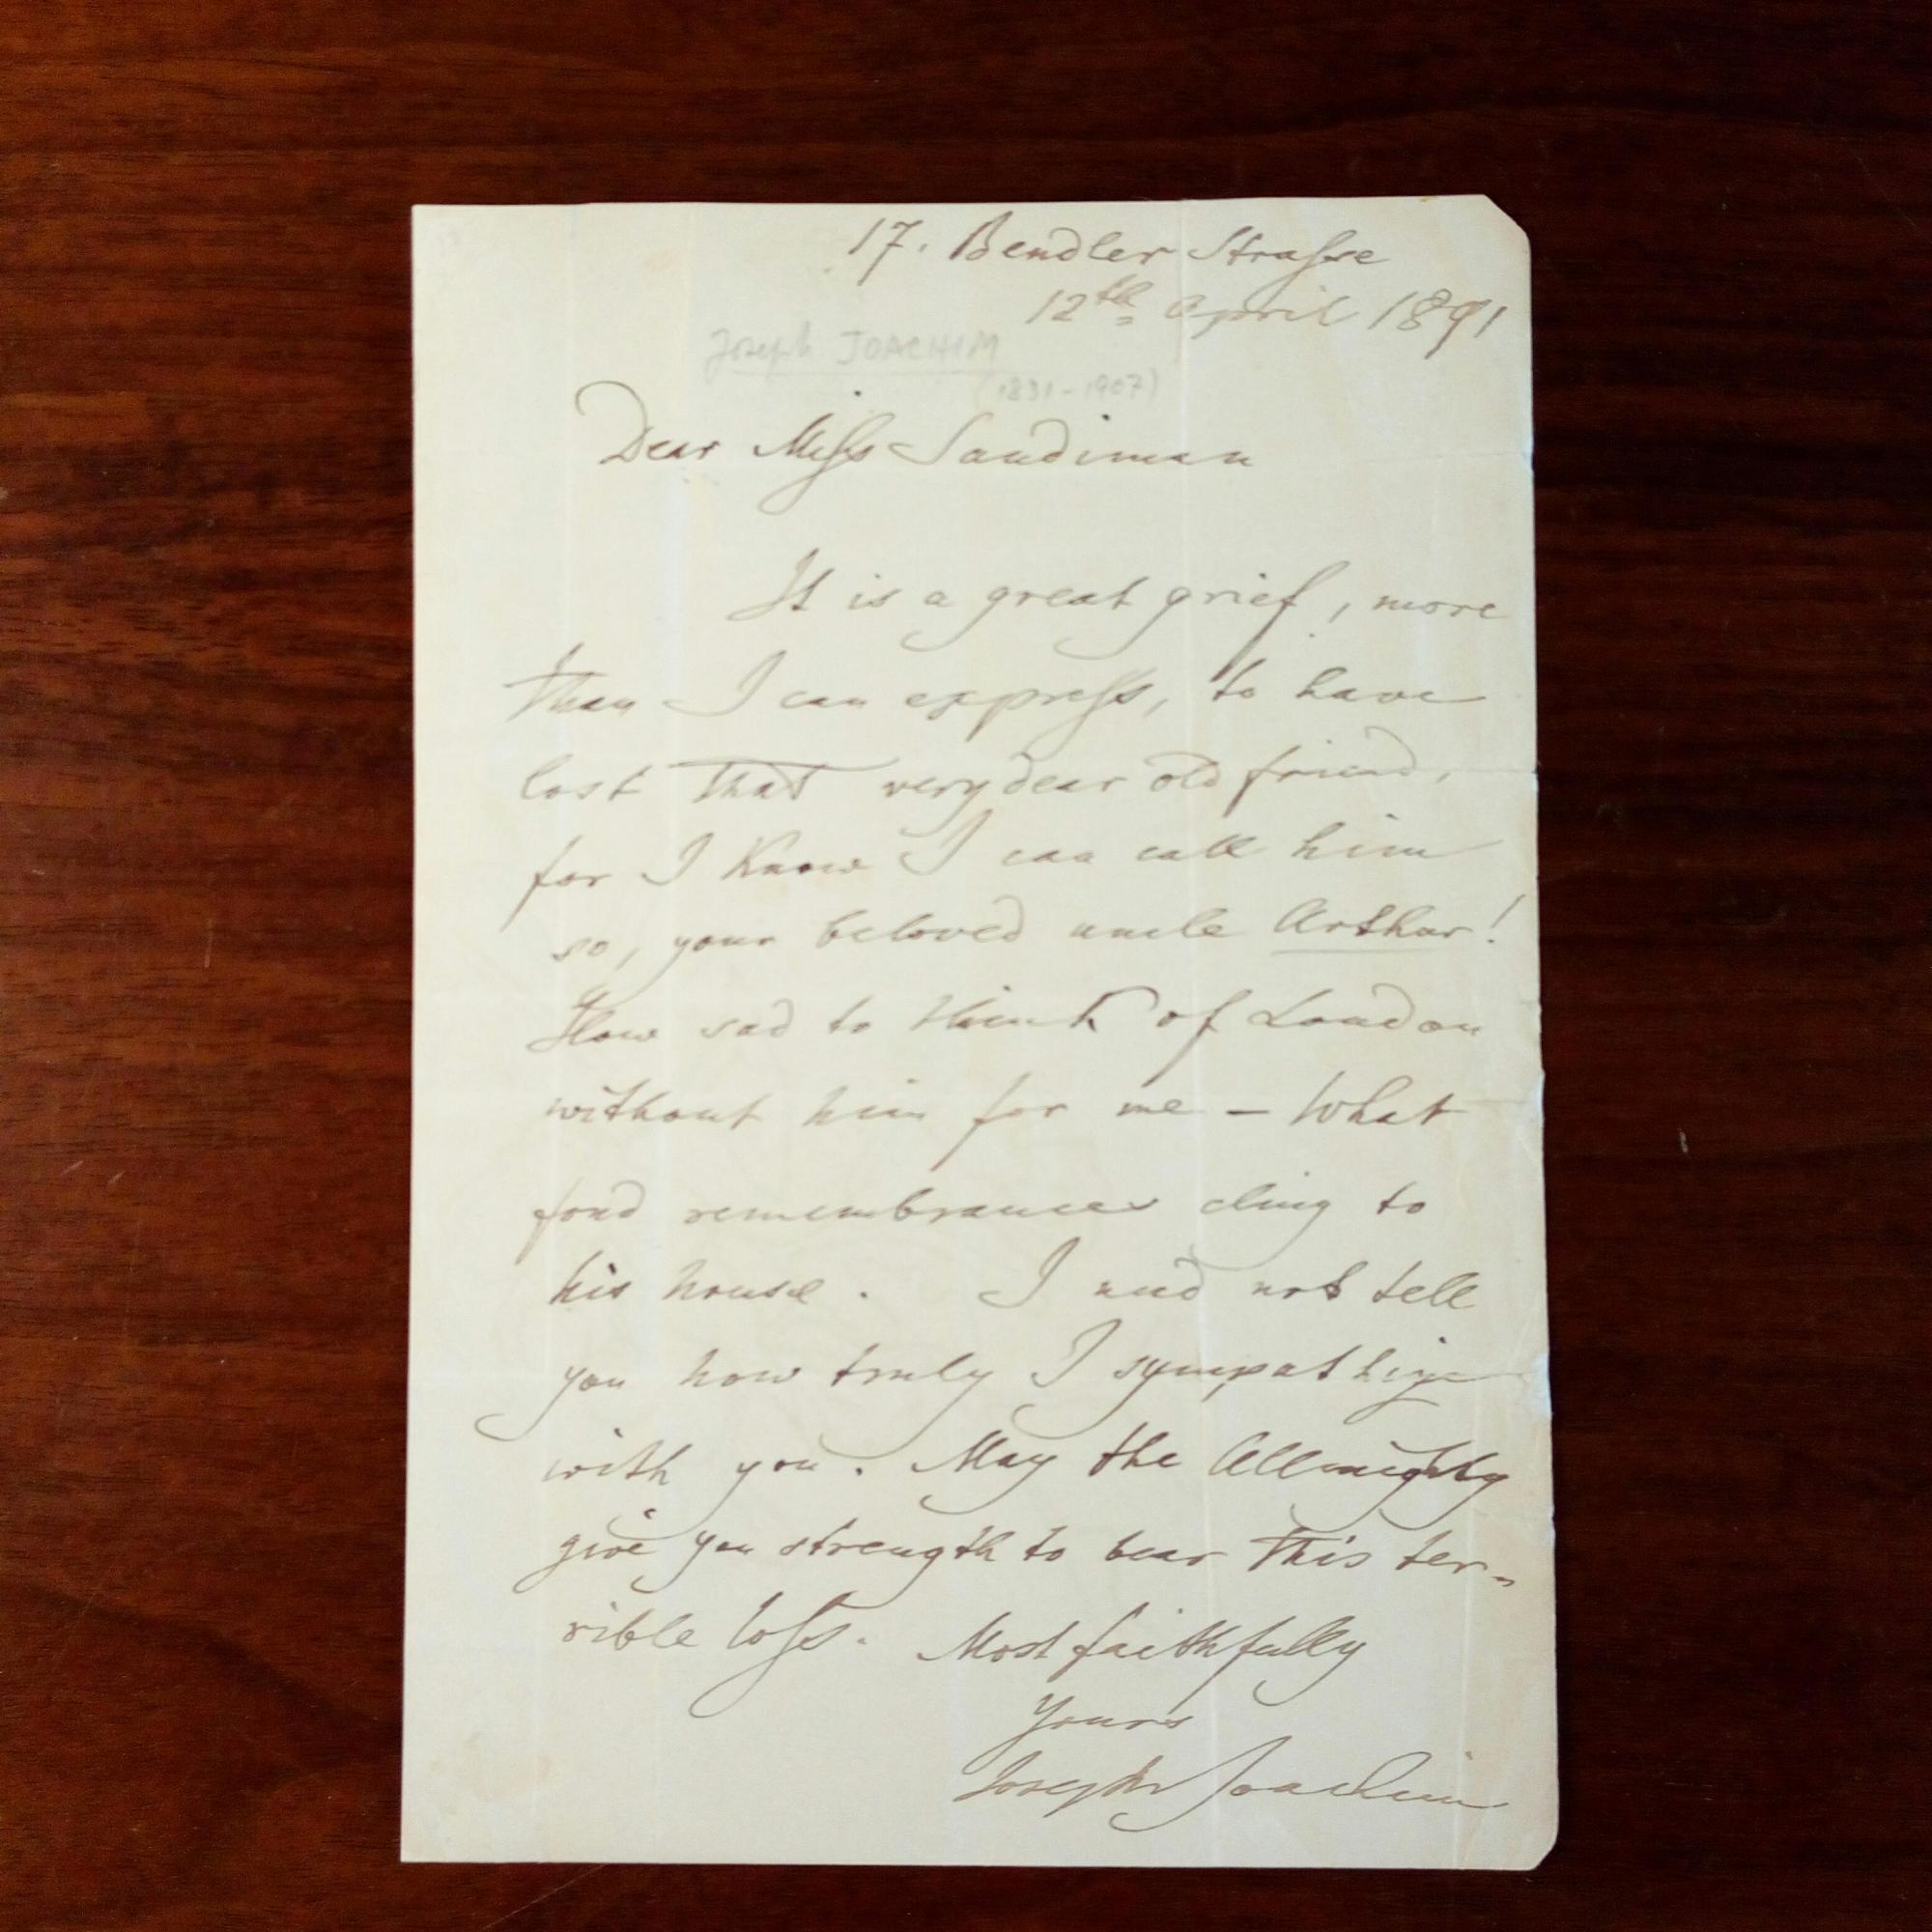 17. Bendler Straſse
12th April 1891
Joseph JOACHIM
(1831-1907)
Dear Miſs Sandiman
It is a great grief, more
than I can expreſs, to have
lost that very dear old friend,
for I know I can call him
so, your beloved uncle Arthur!
How sad to think of London
without him for me – What
fond remembrances cling to
his house. I need not tell
you how truly I sympathize
with you. May the Allmighty
give you strength to bear this ter-
rible loſs. Most faithfully
Yours
Joseph Joachim